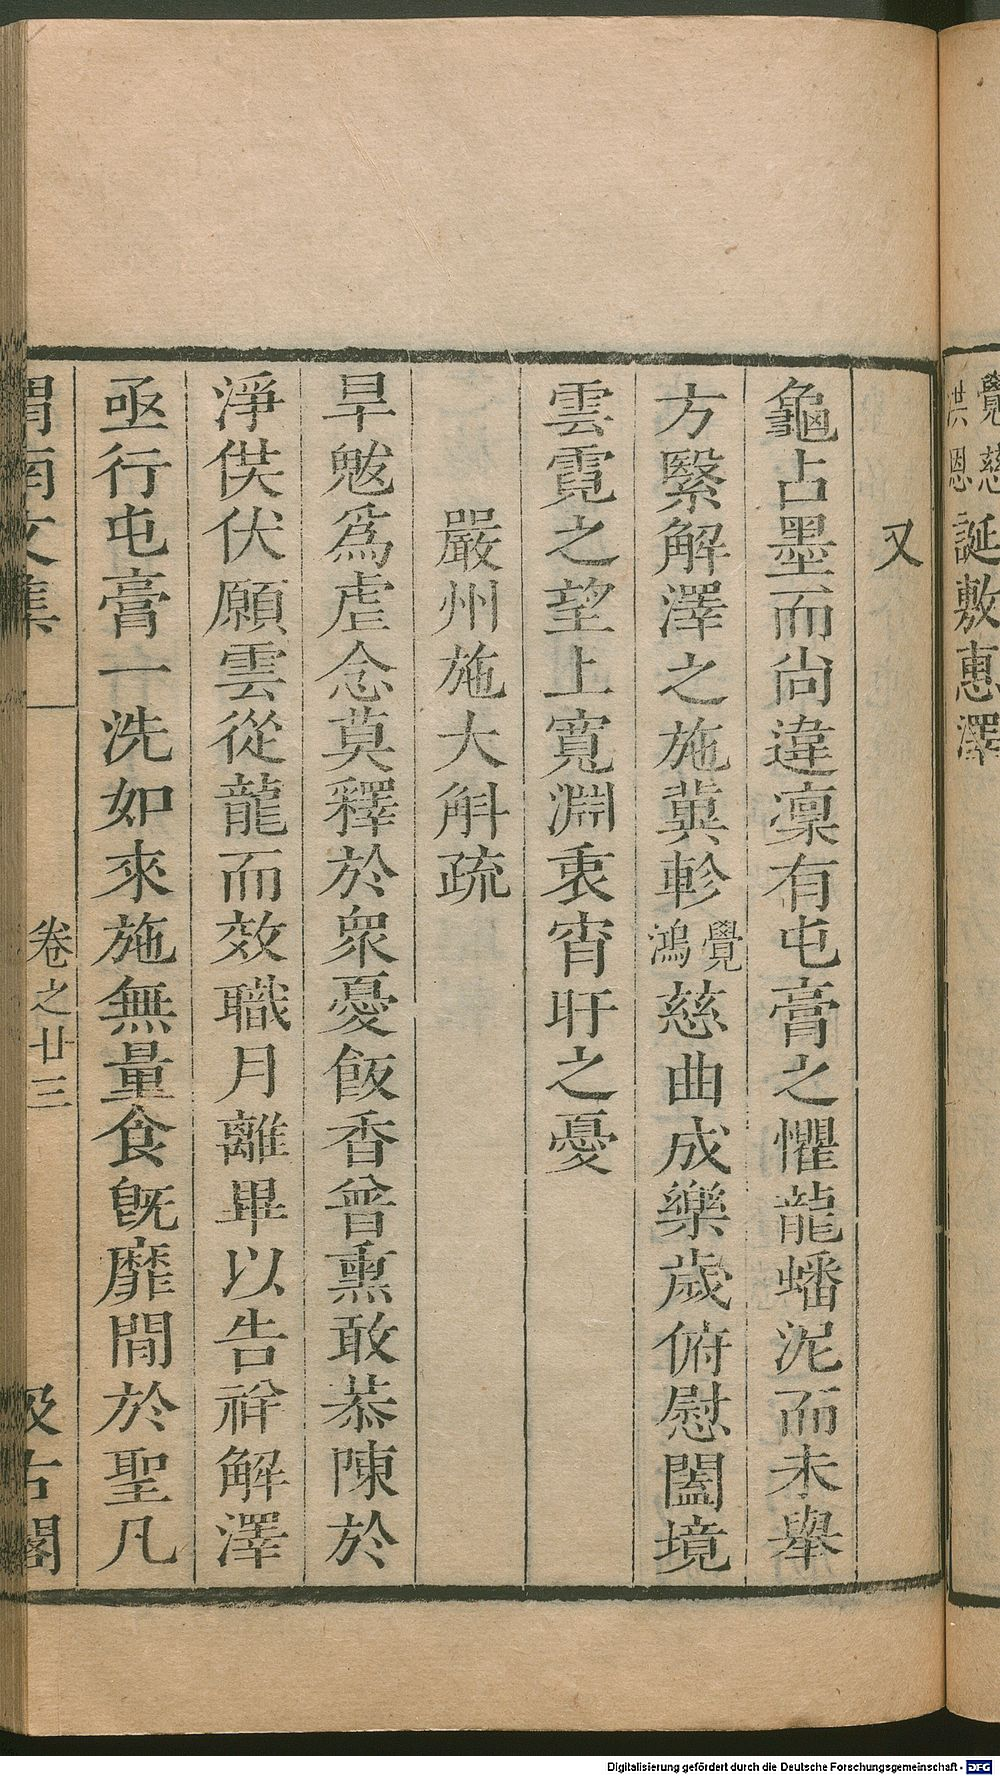 覺慈
洪恩
誕敷惠澤
又
龜占墨而尙違凜有屯膏之懼龍蟠泥而未舉
方繄解澤之施冀軫覺鴻慈曲成樂歲俯慰闔境
雲霓之望上寬淵衷宵旰之憂
嚴州施大斛疏
旱魃爲虐念莫釋於衆憂飯香曾熏敢恭陳於
淨供伏願雲從龍而效職月離畢以告祥解澤
亟行屯膏一洗如來施無量食旣靡間於聖凡
渭南文集
卷之廿三
汲古閣
Digitalisierung gefördert durch die Deutsche Forschungsgemeinschaft - DFG